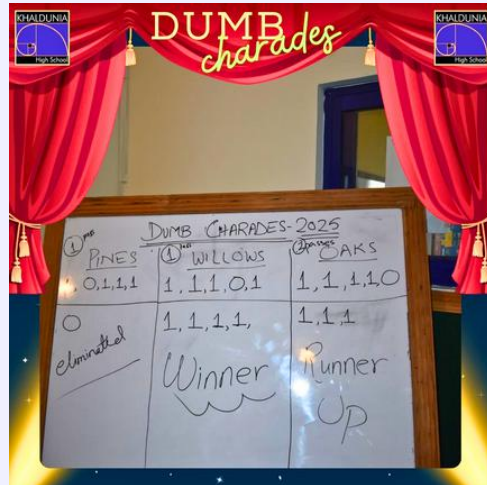 KHALDUNIA
High School
DUMB
charades
KHALDUNIA
High School
DUMB CHARADES-2025
1 pass
PINES
1 pass
WILLOWS
2 passes
OAKS
, 0,1,1,1
1,1,1,0,1
1,1,1,1,0
0
eliminated
1,1,1,1,
Winner
1,1,1
Runner
Up